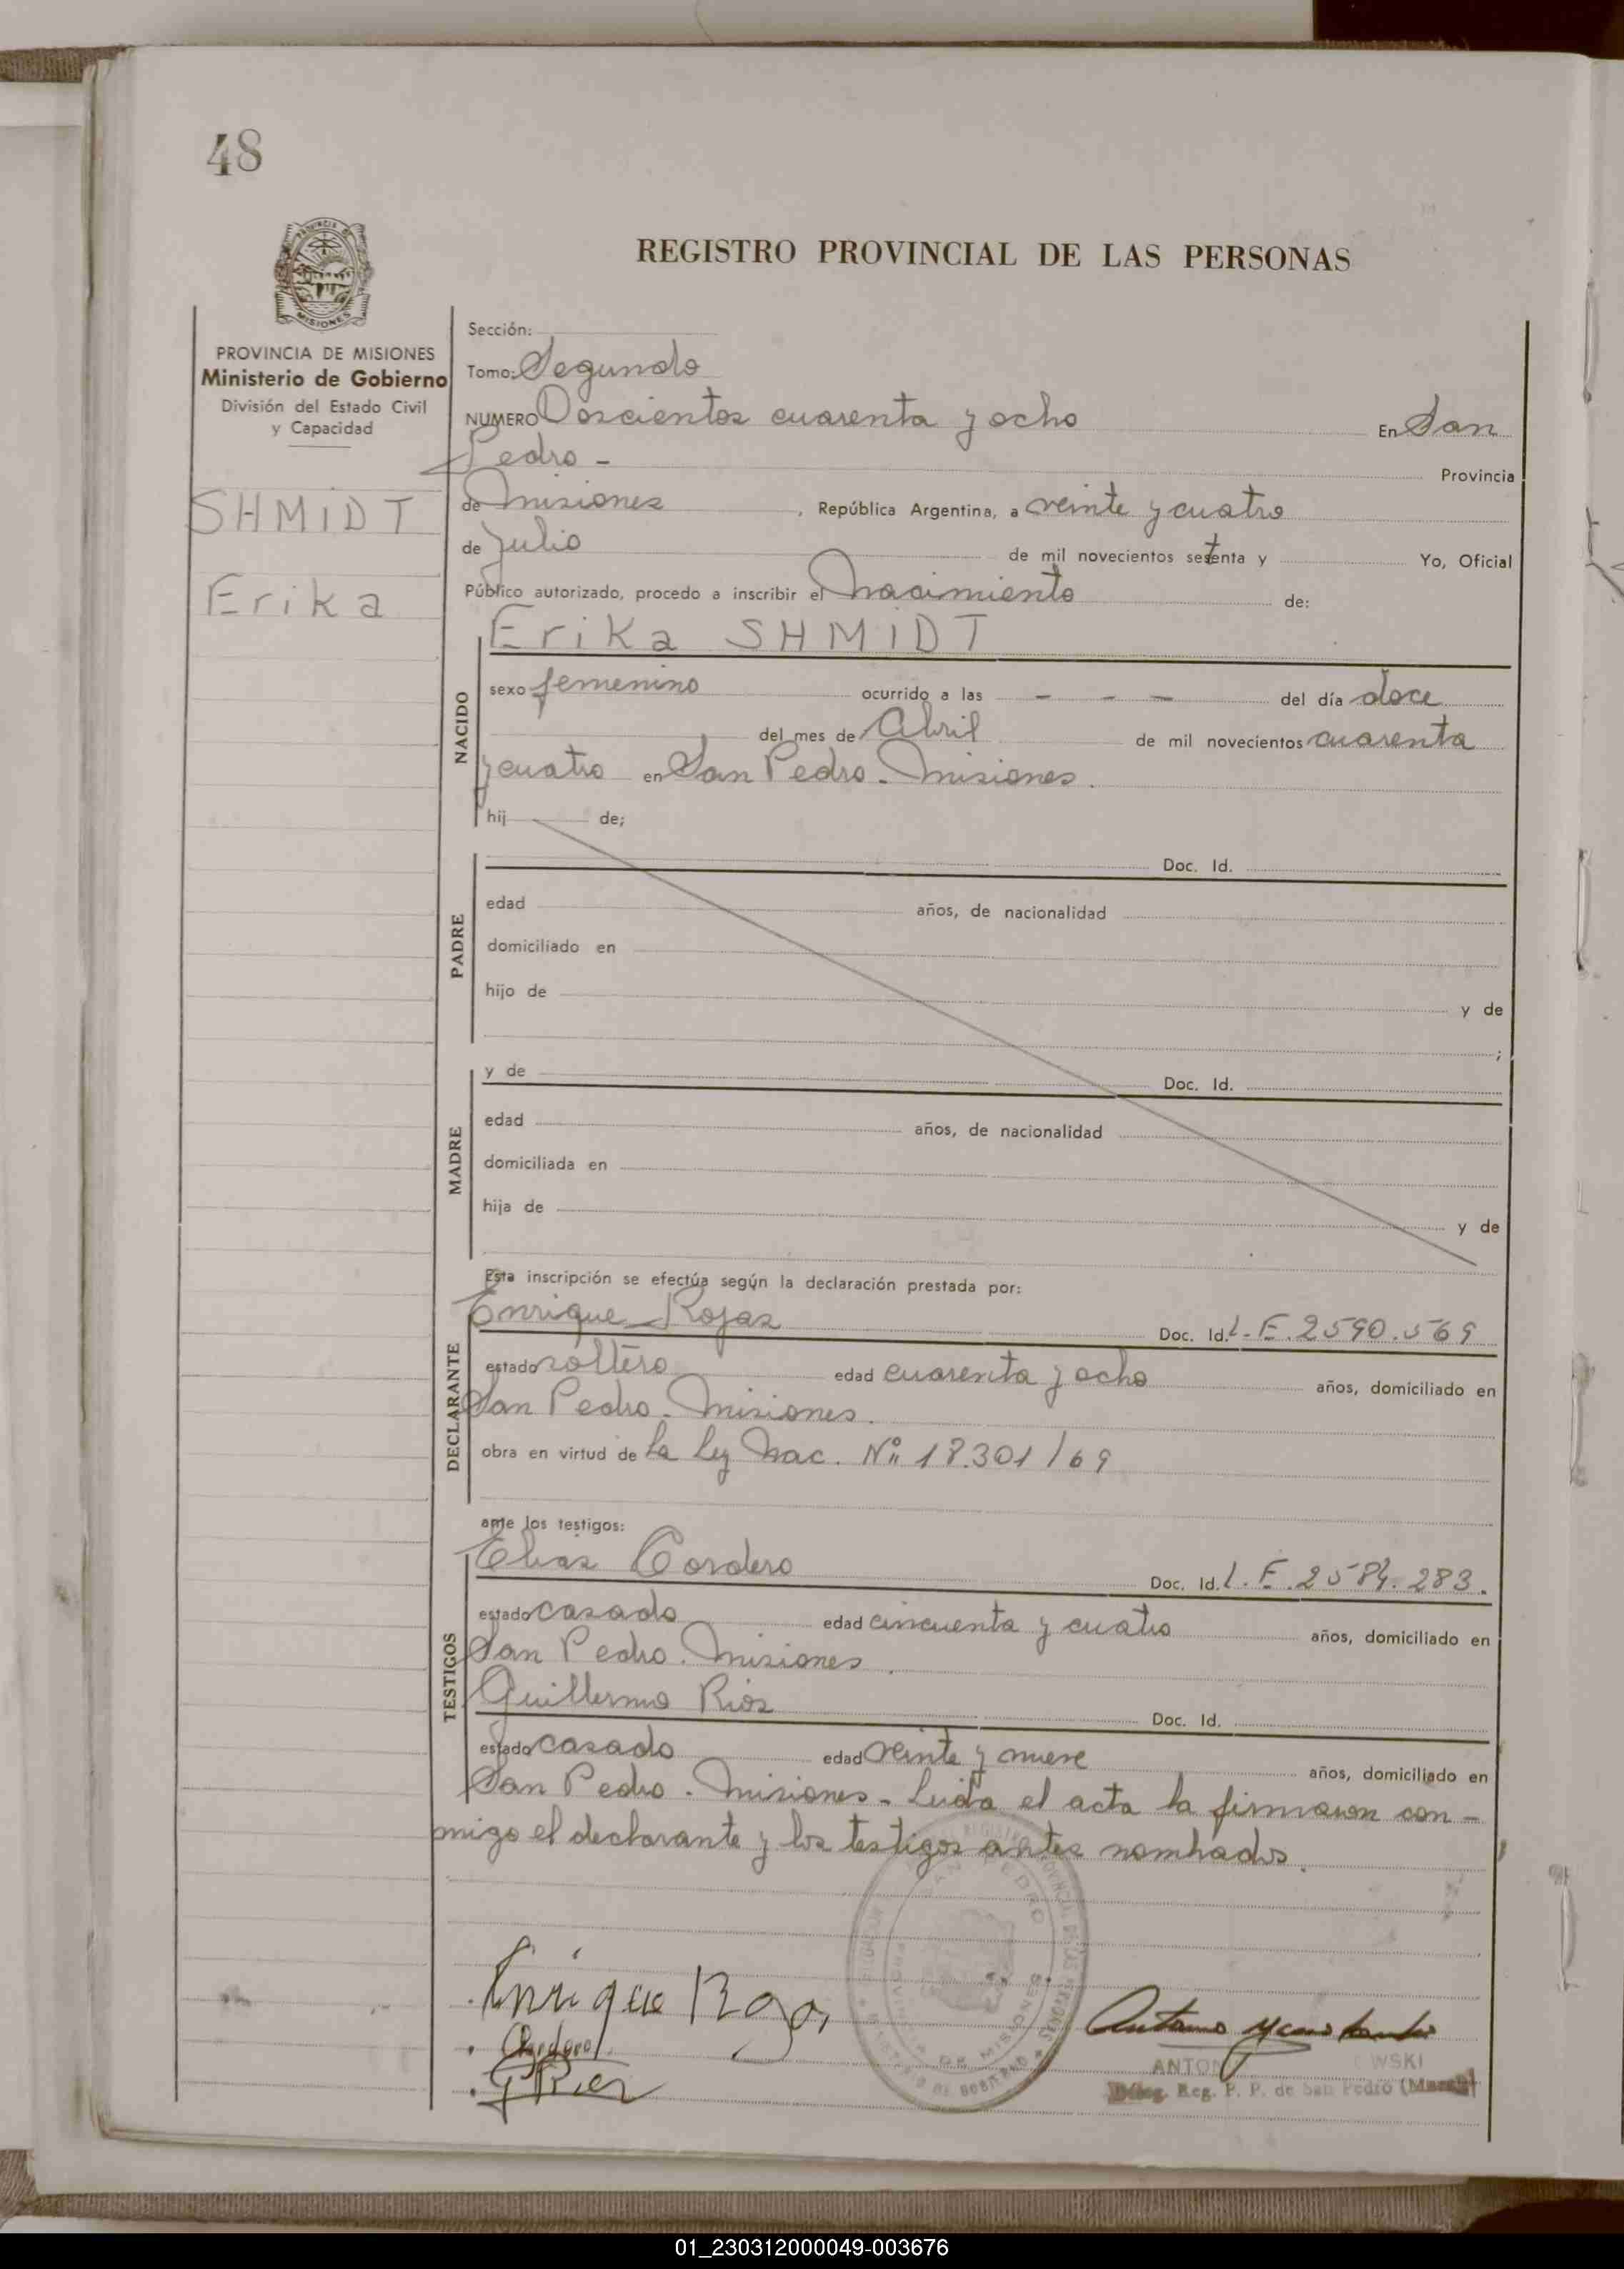 48
REGISTRO PROVINCIAL DE LAS PERSONAS
MISIONES
PROVINCIA DE MISIONES
Ministerio de Gobierno
División del Estado Civil
y Capacidad
SHMIDT
Erika
Sección:
Tomo: Segundo
NUMERO Doscientos cuarenta y ocho En San
Pedro - Provincia
de Misiones, República Argentina, a veinte y cuatro
de Julio de mil novecientos setenta y Yo, Oficial
Público autorizado, procedo a inscribir el Nacimiento de:
Erika SHMIDT
NACIDO
sexo femenino ocurrido a las - - - del día doce
del mes de Abril de mil novecientos cuarenta
y cuatro en San Pedro - Misiones.
hij de;
PADRE
Doc. Id.
edad años, de nacionalidad
domiciliado en
hijo de y de
;
MADRE
y de Doc. Id.
edad años, de nacionalidad
domiciliada en
hija de y de
Esta inscripción se efectúa según la declaración prestada por:
DECLARANTE
Enrique Rojas Doc. Id. L.E. 2590.569
estado soltero edad cuarenta y ocho años, domiciliado en
San Pedro - Misiones.
obra en virtud de la ley Nac. Nº 18.301/69
ante los testigos:
TESTIGOS
Elias Cordero Doc. Id. L.E. 2584.283.
estado casado edad cincuenta y cuatro años, domiciliado en
San Pedro. Misiones.
Guillermo Rios Doc. Id.
estado casado edad veinte y nueve años, domiciliado en
San Pedro - Misiones - Leida el acta la firmaron con -
migo el declarante y los testigos antes nombrados.
SAN PEDRO
DE MISIONES
Enrique Rojas
G Rios
ANTON WSKI
Deleg. Reg. P. P. de San Pedro
01_230312000049-003676